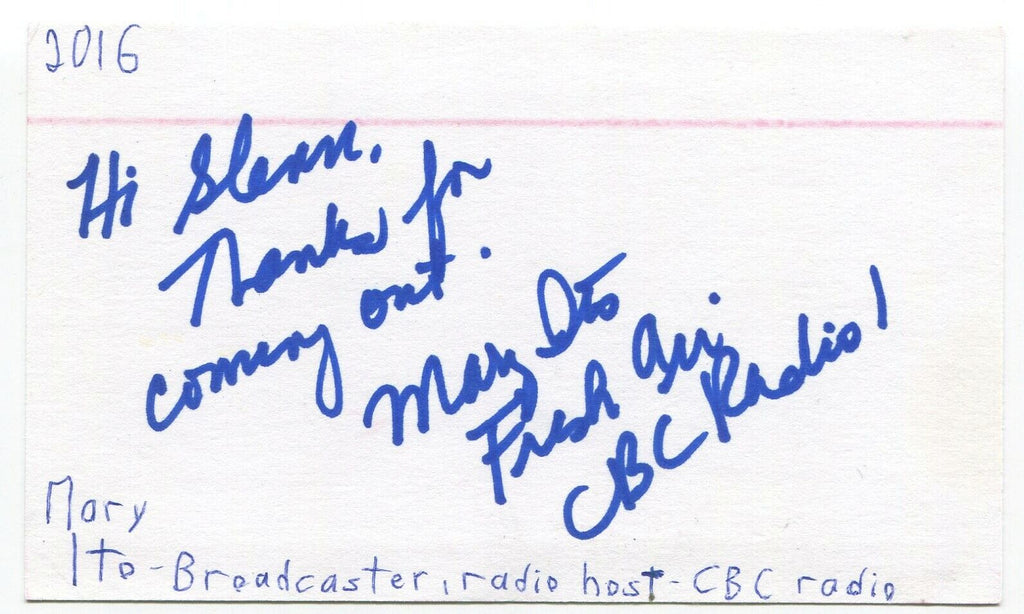 2016
Hi Glenn.
Thanks for
coming out.
Mary Ito
Fresh Air,
CBC Radio!
Mary
Ito - Broadcaster, radio host - CBC radio